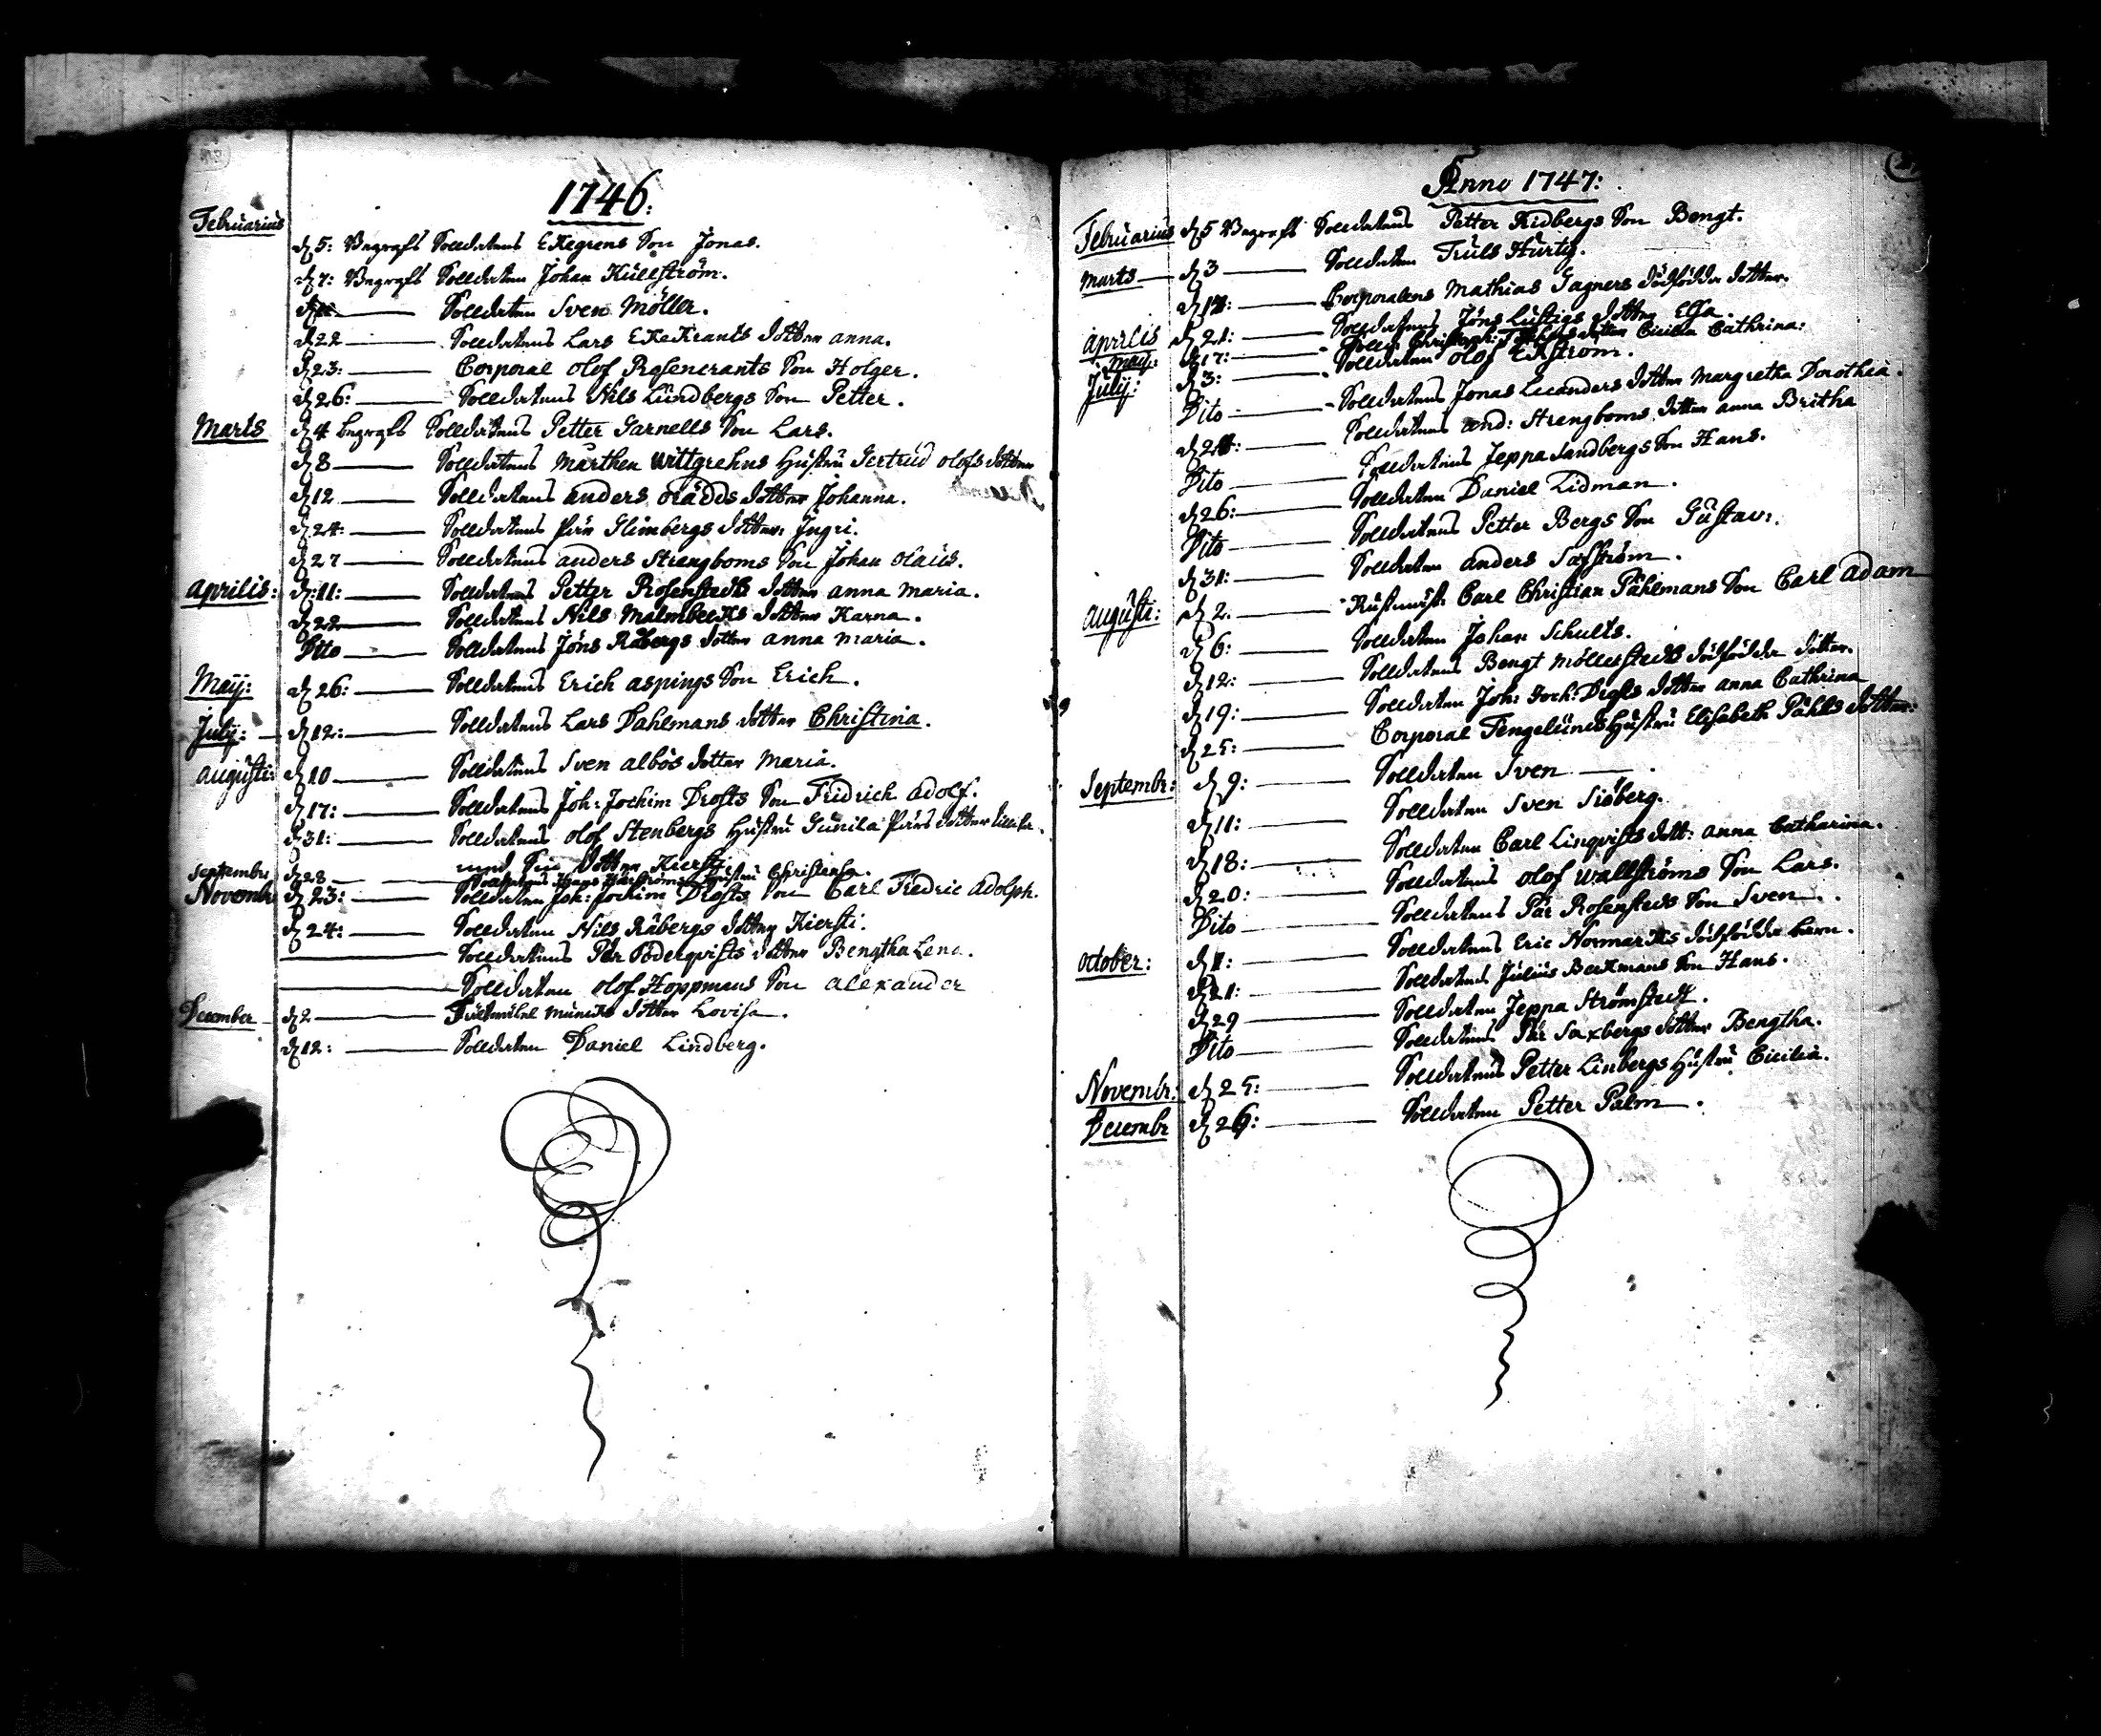 1746.
Februarius
d 5: Begrofs Solldatens Ekegrens Son Jonas.
d 7: Begrofs Solldaten Johan Kullström.
Solldaten Sven Möller.
d 22 Solldatens Lars Ekekrants dotter anna.
d 23: Corporal olof Rosencrants Son Holger.
d 26: Solldatens Nils Lundbergs Son Petter.
Marts d 4 begrofs Solldatens Petter Garnells Son Lars.
d 8 Solldatens Mårthen Wittgrehns Hustru Gertrud olofs dotter
d 12 Solldatens anders Rädds dotter Johanna.
d 24: Solldatens Pärs Glimbergs dotter: Ingri.
d 27 Solldatens anders Strengboms Son Johan olaus.
aprilis: d: 11: Solldatens Petter Rosenstedts dotter anna maria.
d 22 Solldatens Nils Malmbecks dotter Karna.
Dito Solldatens Jöns Råbergs dotter anna maria.
Maij: d 26: Solldatens Erich aspings Son Erich.
July: d 12: Solldatens Lars Dahlmans dotter Christina.
augusti: d 10 Solldatens Sven albös dotter Maria.
d 17: Solldatens Joh: Jochim Drosts Son Fridrich adolf.
d 31: Solldatens olof Stenbergs Hustru Gunila Pärs dotter
med Sin dotter Kiersti
Septembr d 28 Solldatens Hustru Christensa.
Novembr d 23: Solldaten Joh: Jochim Drosts Son Carl Fredric adolph.
d 24: Solldatens Nils Råbergs dotter Kiersti.
Solldatens Pär Söderqvists dotter Bengtha Lena.
Solldaten olof Hoppmans Son alexander
December d 2 Fältwäbel Muncks dotter Lovisa.
d 12: Solldaten Daniel Lindberg.
Anno 1747:
Februarius d 5 Begrofs Solldatens Petter Ridbergs Son Bengt.
Marts d 3 Solldaten Truls Hurtig.
d 17: Corporalens Mathias Gagners dödfödde dotter.
aprilis d 21: Solldatens Jöns Lustigs dotter Elsa.
May: d 17: Christoph: dotter Cicilia Cathrina:
July: d 3: Solldaten olof Ekström.
Dito Solldatens Jonas Lucanders dotter Margretha Dorothea.
d 24: Solldatens And: Strengboms dotter anna Britha
Dito Solldatens Jeppa Sandbergs Son Hans.
d 26: Solldaten Daniel Lidman.
Dito Solldatens Petter Bergs Son Gustav:
d 31: Solldaten anders Saxström.
augusti: d 2. Rustmäst: Carl Christian Påhlmans Son Carl adam
d 6: Solldaten Johan Schults.
d 12: Solldatens Bengt Möllerstedts dödfödde dotter.
d 19: Solldaten Joh: Joch: Drosts dotter anna Cathrina
d 25: Corporal Tengelunds Hustru Elisabeth Påhls dotter:
Septembr: d 9: Solldaten Sven .
d 11: Solldaten Sven Siöberg.
d 18: Solldaten Carl Linqvists dott: anna Catharina.
d 20: Solldatens olof Wallströms Son Lars.
Dito Solldatens Pär Rosensteds Son Sven.
october: d 1: Solldatens Eric Normarks dödfödde barn.
d 21: Solldatens Julius Berkmans Son Hans.
d 29 Solldaten Jeppa Strömstedt.
Dito Solldatens Pär Saxbergs dotter Bengtha.
Novembr: d 25: Solldatens Petter Linbergs Hustru Cicilia.
Decembr d 26: Solldaten Petter Palm.